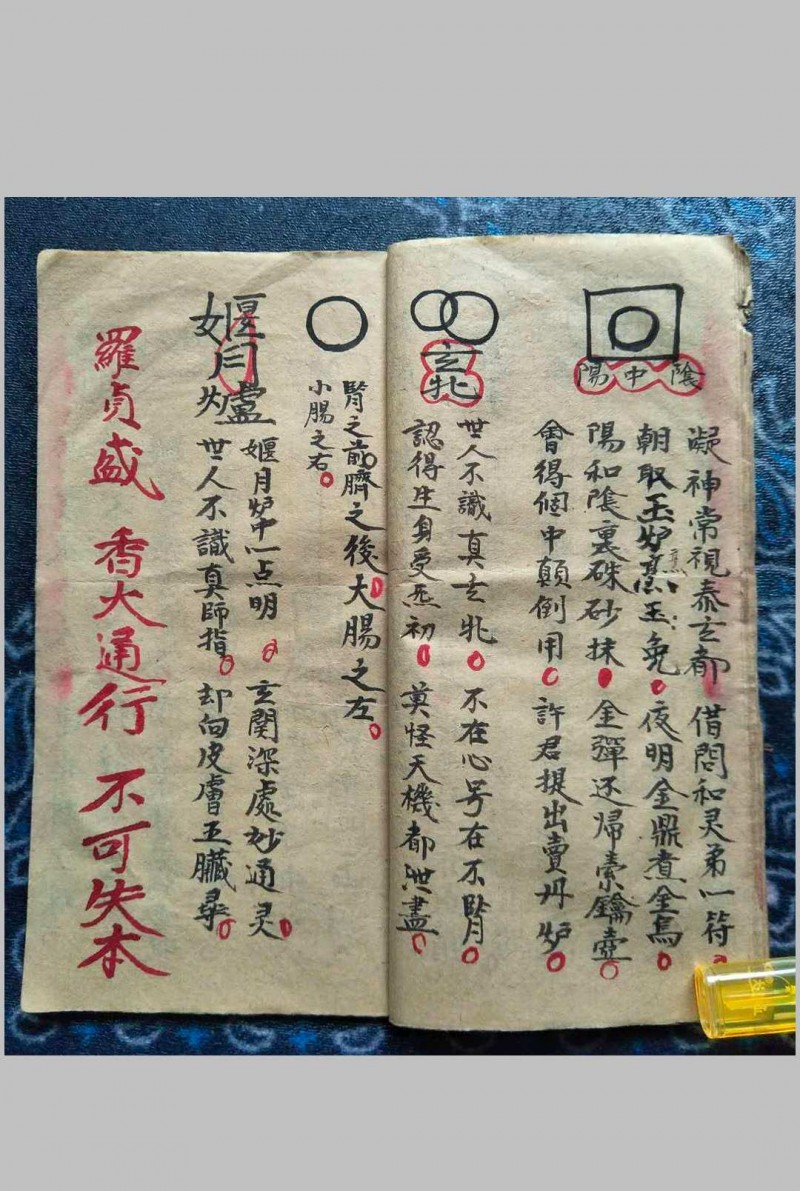 陽中陰
凝神常視泰玄都　借問和灵弟一符
朝取玉炉烹玉兔　夜明金鼎煮金烏
陽和陰裏硃砂抹　金彈还帰索鑰壺
會得個中顛倒用　許君提出賣丹炉
玄牝
世人不識真玄牝　不在心号在不腎
認得生身受炁初　莫怪天機都泄盡
腎之前臍之後大腸之左
小腸之右
姬月爐
姬月炉中一点明　玄関深處妙通灵
世人不識真師指　却向皮膚五臟尋
羅貞盛　香火通行　不可失本